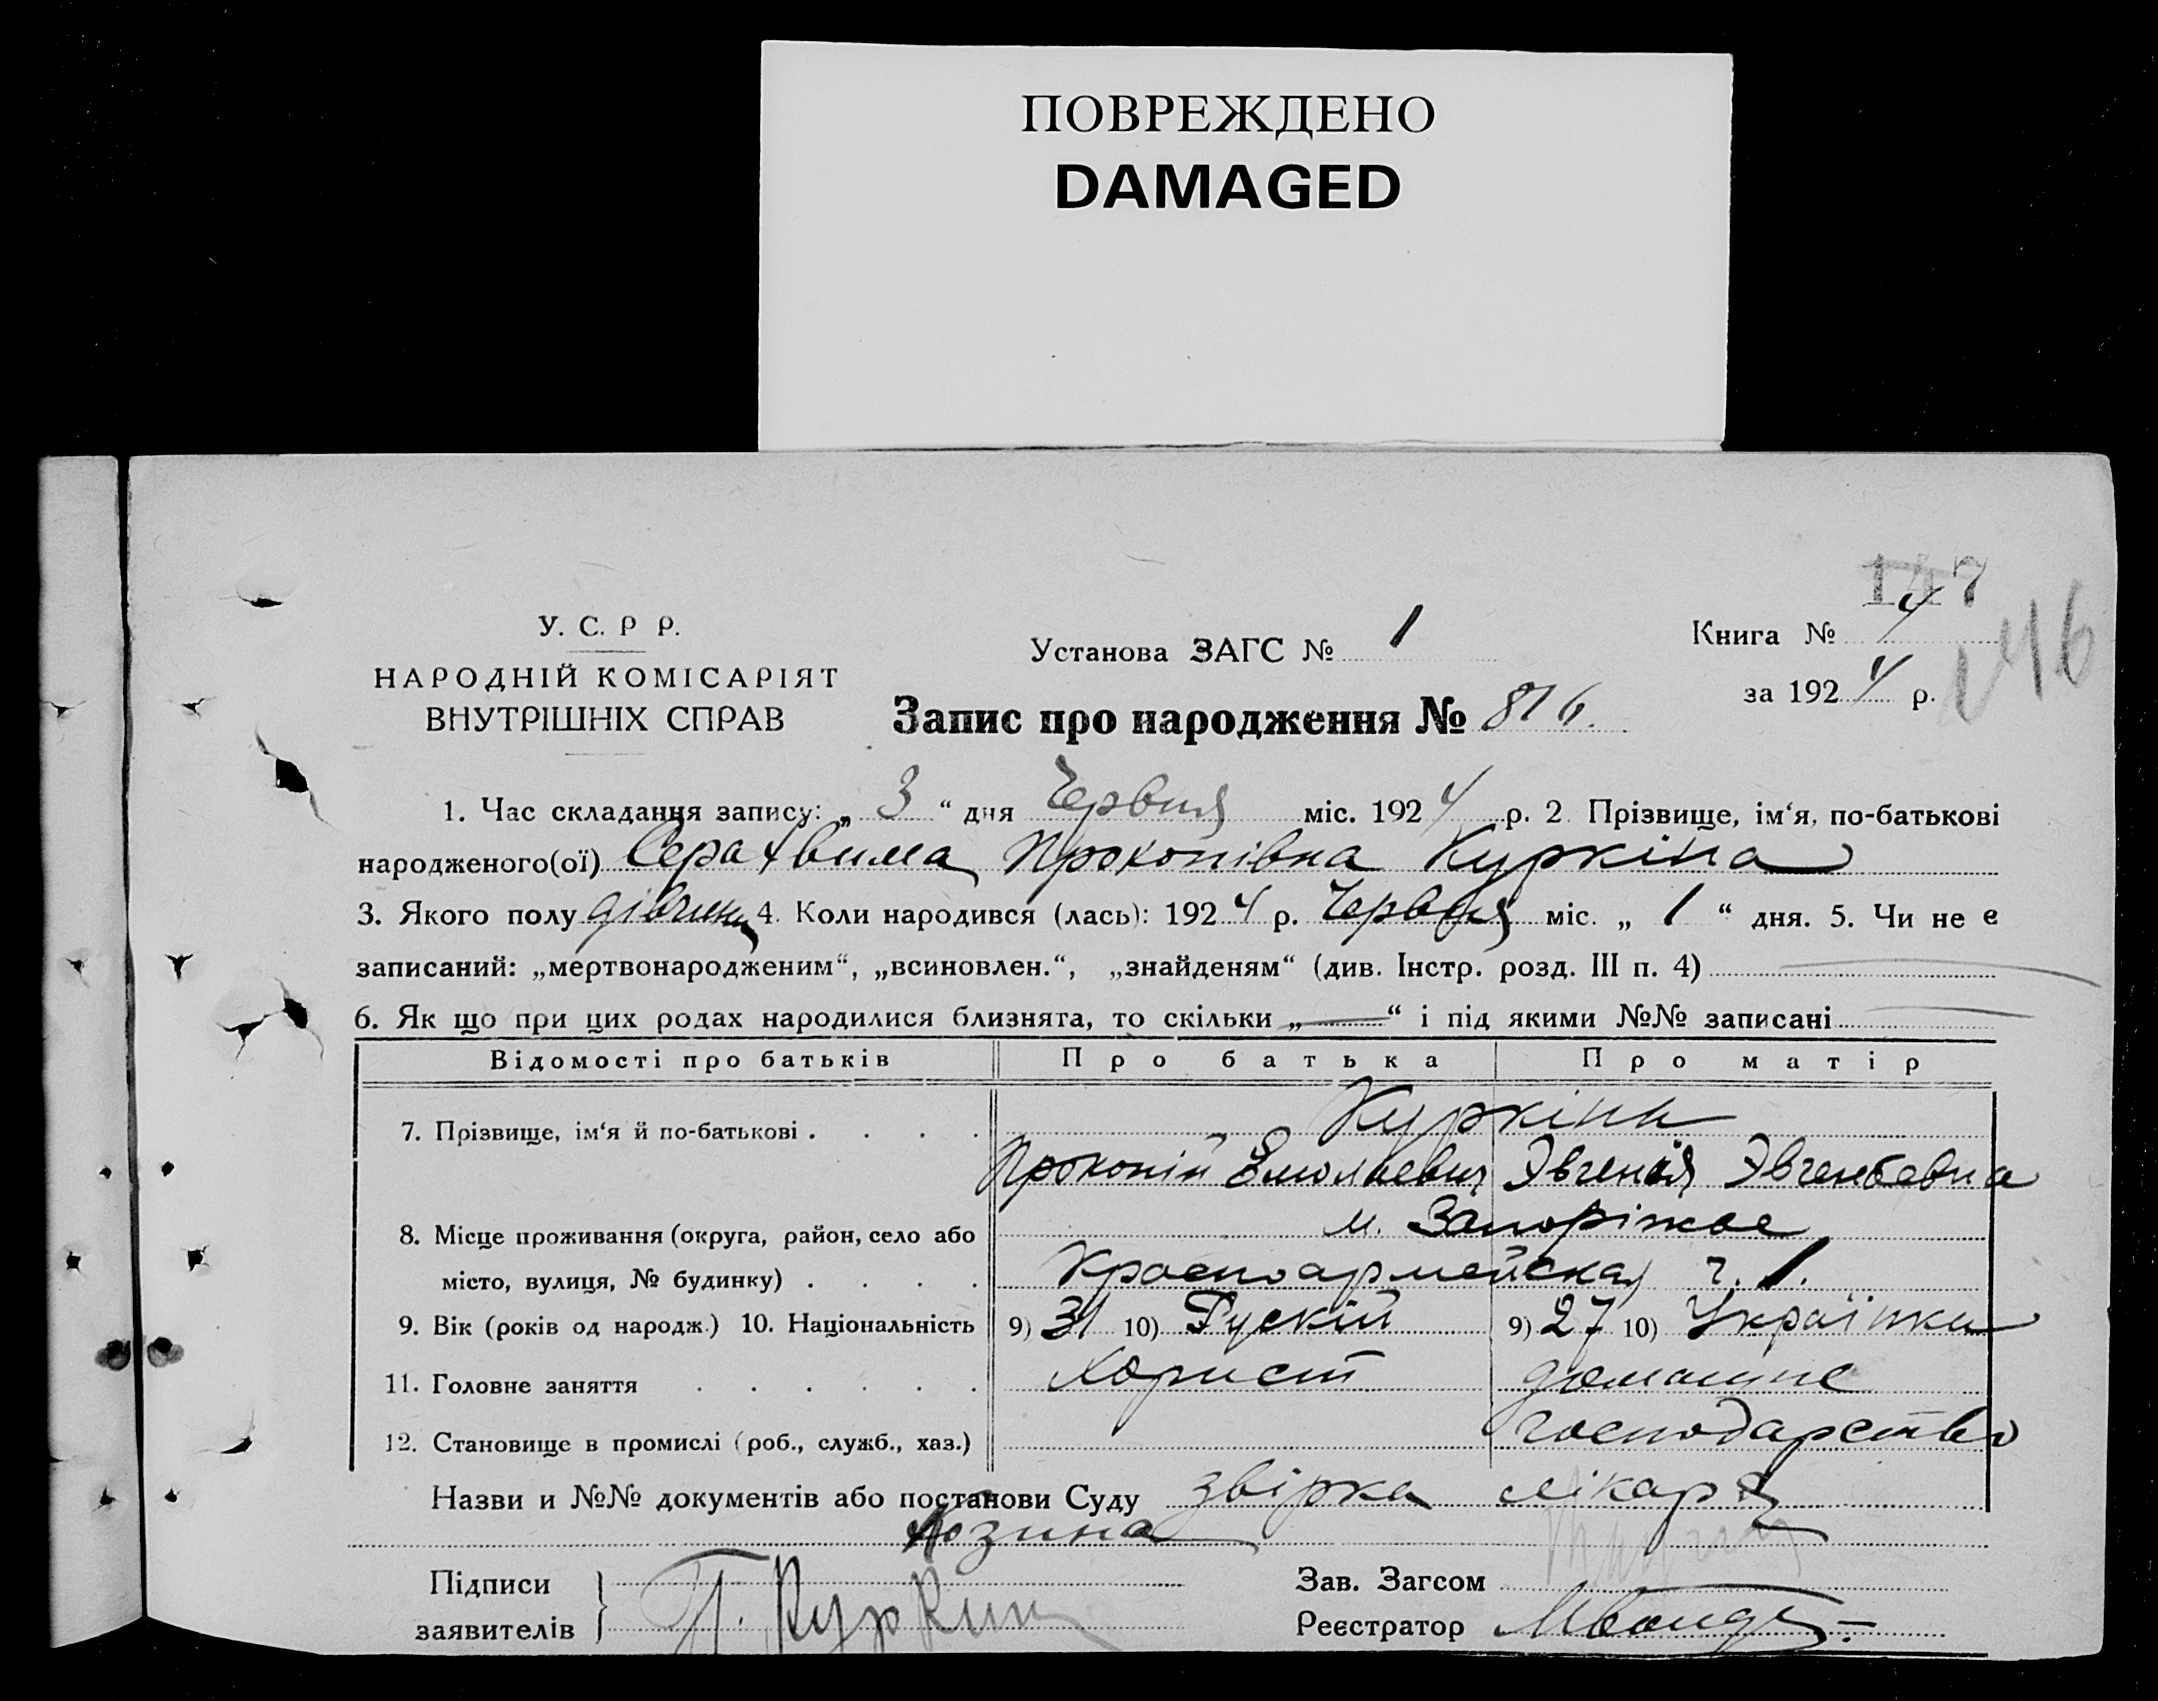 ПОВРЕЖДЕНО
DAMAGED
147
146
У. С. Р Р.
НАРОДНІЙ КОМІСАРІЯТ
ВНУТРІШНІХ СПРАВ
Установа ЗАГС № 1
Книга № 4
за 1924 р.
Запис про народження № 816.
1. Час складання запису: „ 3 “ дня Червня міс. 1924 р. 2. Прізвище, ім‘я, по-батькові
народженого(ої) Серахвима Прокопівна Куркіна
3. Якого полу дівчина 4. Коли народився (лась): 1924 р. Червня міс. „ 1 “ дня. 5. Чи не є
записаний: „мертвонародженим“, „всиновлен.“, „знайденям“ (див. Інстр. розд. III п. 4)
6. Як що при цих родах народилися близнята, то скільки „ — “ і під якими №№ записані
Відомості про батьків Про батька Про матір
7. Прізвище, ім‘я й по-батькові . . . . Куркіни
Прокопій Евгенія Эвгеньевна
8. Місце проживання (округа, район, село або м. Запоріжье
місто, вулиця, № будинку) . . . . Красноармейская ч. 1.
9. Вік (років од народж.) 10. Національність 9) 31 10) Рускій 9) 27 10) Українка
11. Головне заняття . . . . . . Хорист домашне
12. Становище в промислі (роб., служб., хаз.) господарство
Назви и №№ документів або постанови Суду звірка лікаря
Хозина
Підписи
заявителів П. Куркин
Зав. Загсом
Реєстратор